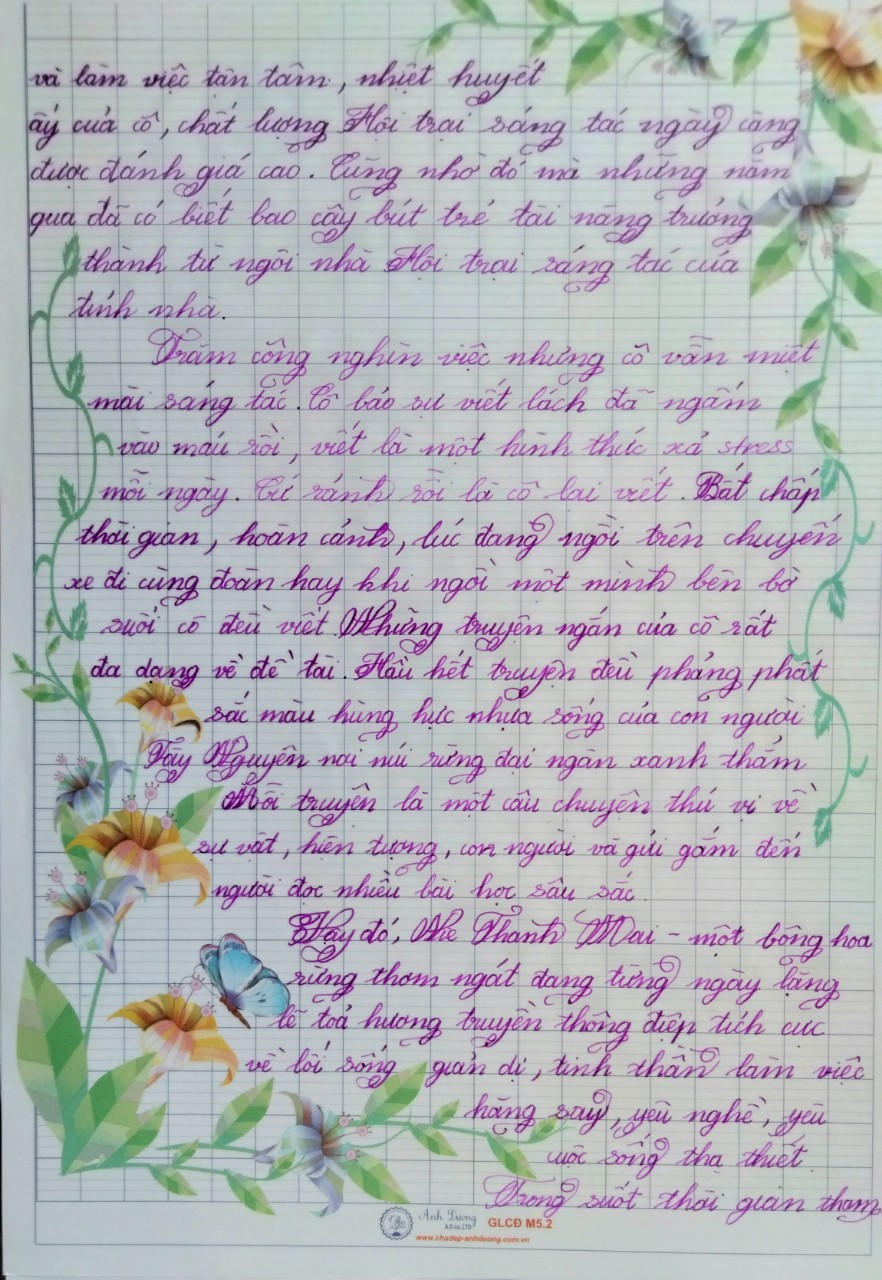 và làm việc tận tâm, nhiệt huyết
ấy của cô, chất lượng Hội trại sáng tác ngày càng
được đánh giá cao. Cũng nhờ đó mà những năm
qua đã có biết bao cây bút trẻ tài năng trưởng
thành từ ngôi nhà Hội trại sáng tác của
tỉnh nhà.
Trăm công nghìn việc nhưng cô vẫn miệt
mài sáng tác. Cô bảo sự viết lách đã ngấm
vào máu rồi, viết là một hình thức xả stress
mỗi ngày. Cứ rảnh rỗi là cô lại viết. Bất chấp
thời gian, hoàn cảnh, lúc đang ngồi trên chuyến
xe đi cùng đoàn hay khi ngồi một mình bên bờ
suối cô đều viết. Những truyện ngắn của cô rất
đa dạng về đề tài. Hầu hết truyện đều phảng phất
sắc màu hừng hực nhựa sống của con người
Tây Nguyên nơi núi rừng đại ngàn xanh thẳm
Mỗi truyện là một câu chuyện thú vị về
sự vật, hiện tượng, con người và gửi gắm đến
người đọc nhiều bài học sâu sắc.
Vậy đó, Thanh Mai - một bông hoa
rừng thơm ngát đang từng ngày lặng
lẽ toả hương truyền thông điệp tích cực
về lối sống giản dị, tinh thần làm việc
hăng say, yêu nghề, yêu
cuộc sống tha thiết.
Trong suốt thời gian tham
Ánh Dương
A.D co.,LTD
GLCĐ M5.2
www.chudep-anhduong.com.vn